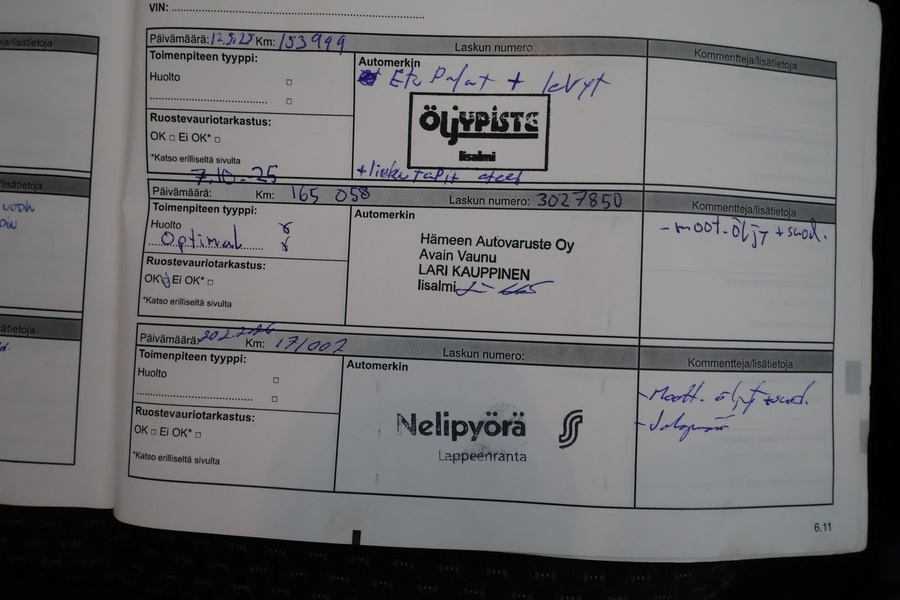 VIN:
Päivämäärä: 12.5.25 Km: 153999 Laskun numero:
Kommentteja/lisätietoja
Toimenpiteen tyyppi:
Automerkin
Huolto
Etu Palat + levyt
Ruostevauriotarkastus:
OK □ Ei OK* □
*Katso erilliseltä sivulta
ÖljyPISTE
Iisalmi
7.10.25
Päivämäärä: Km: 165 058 Laskun numero: 3027850
Kommentteja/lisätietoja
Toimenpiteen tyyppi:
Automerkin
Huolto
Optimal
Ruostevauriotarkastus:
OK Ei OK* □
*Katso erilliseltä sivulta
Hämeen Autovaruste Oy
Avain Vaunu
LARI KAUPPINEN
Iisalmi
- moot.öljy + suod.
Päivämäärä: Km: 171002 Laskun numero:
Kommentteja/lisätietoja
Toimenpiteen tyyppi:
Automerkin
Huolto
Ruostevauriotarkastus:
OK □ Ei OK* □
*Katso erilliseltä sivulta
Nelipyörä
Lappeenranta
- Moott. öljyt + suod.
6.11